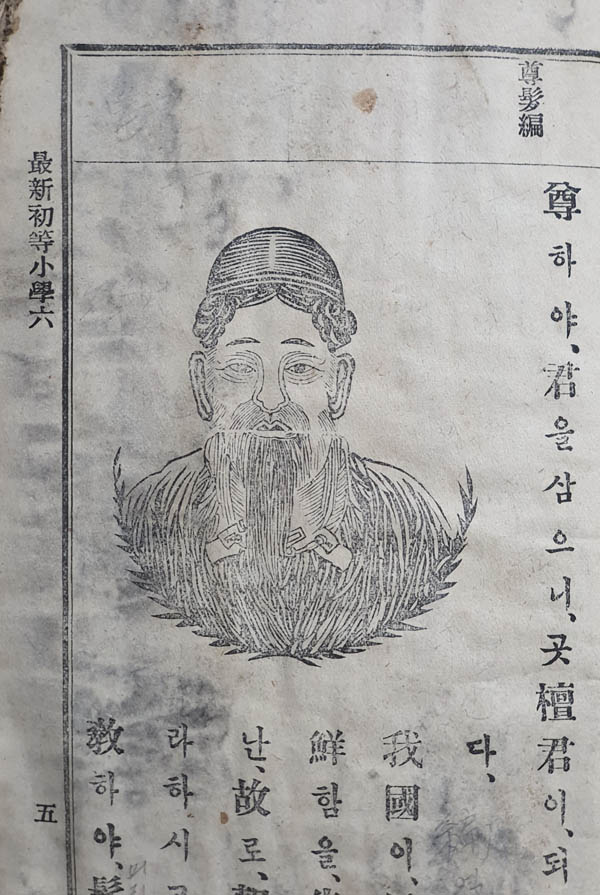 尊髮編
尊하야、君을삼으니、곳檀君이、되
다、
我國이、
鮮함을、
난、故로、
라하시고
敎하야、髮
最新初等小學六
五